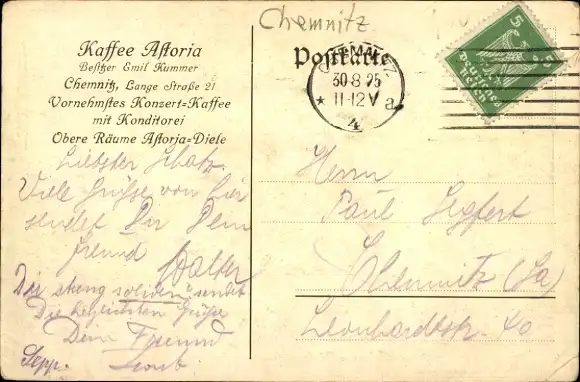 Chemnitz
Kaffee Astoria
Besitzer Emil Kummer
Chemnitz, Lange Straße 21
Vornehmstes Konzert=Kaffee
mit Konditorei
Obere Räume Astoria=Diele
Postkarte
CHEMNITZ
30·8·25
★ 11-12 V a
4
5
DEUTSCHES
REICH
Liebster Schatz.
Viele Grüsse von hier
sendet Dir Dein
Freund Walter
Die streng soliden" sendet
Die herzlichsten Grüße
Dein Freund
Sepp.
Herrn
Paul Segfert
Chemnitz (Sa)
Leonhardtstr. 40